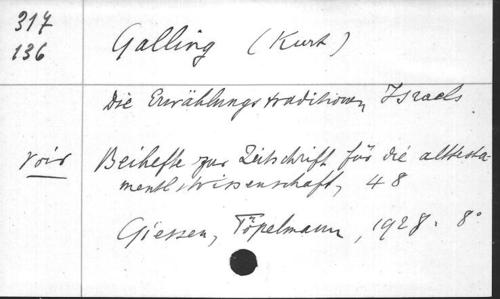 317
136
Galling (Kurt)
Die Erwählungstraditionen Israels
voir
Beihefte zur Zeitschrift für die alttesta-
mentl. Wissenschaft, 48
Giessen, Töpelmann, 1928. 8°